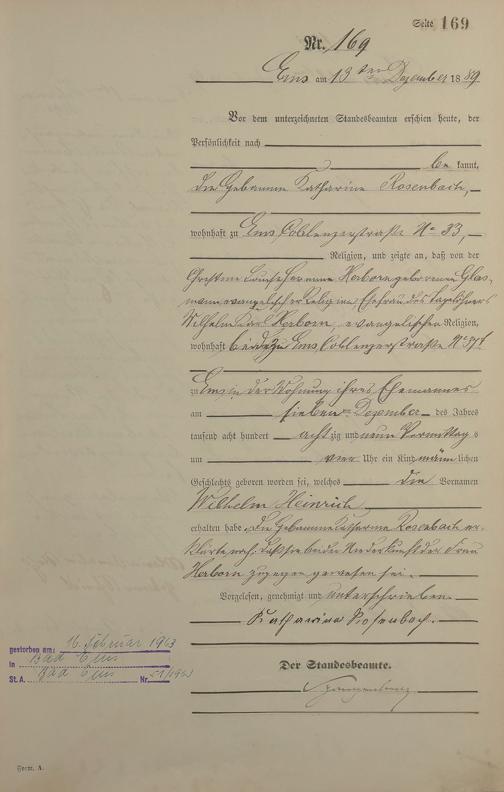 Seite 169
Nr. 169
Ems am 13ten Dezember 1889
Vor dem unterzeichneten Standesbeamten erschien heute, der
Persönlichkeit nach
bekannt,
die Hebamme Katharine Rosenbach,
wohnhaft zu Ems Coblenzerstraße No 33,
Religion, und zeigte an, daß von der
Herborn geborenen Glas-
mann evangelischer Religion Ehefrau des
Wilhelm Karl Herborn, evangelischer Religion,
wohnhaft beide zu Ems Coblenzerstraße No
zu Ems in der Wohnung ihres Ehemannes
am sieben Dezember des Jahres
tausend acht hundert achtzig und neun Vormittags
um vier Uhr ein Kind männlichen
Geschlechts geboren worden sei, welches die Vornamen
Wilhelm Heinrich
erhalten habe. Die Hebamme Katharina Rosenbach er-
klärte noch, daß sie bei der Niederkunft der Frau
Herborn zugegen gewesen sei.
Vorgelesen, genehmigt und unterschrieben.
Katharina Rosenbach.
Der Standesbeamte.
gestorben am: 16. Februar 1963
in Bad Ems
St.A. Bad Ems Nr. /1963
Form. A.